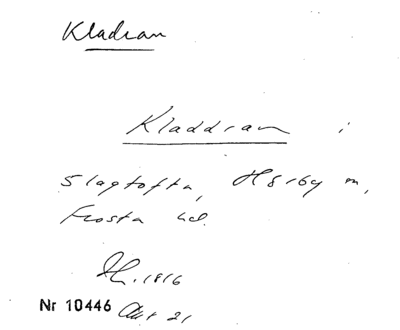 Kladran
Kladdran i
Slagtofta, Hörby m,
Frosta hd.
1816
Nr 10446 Akt 21